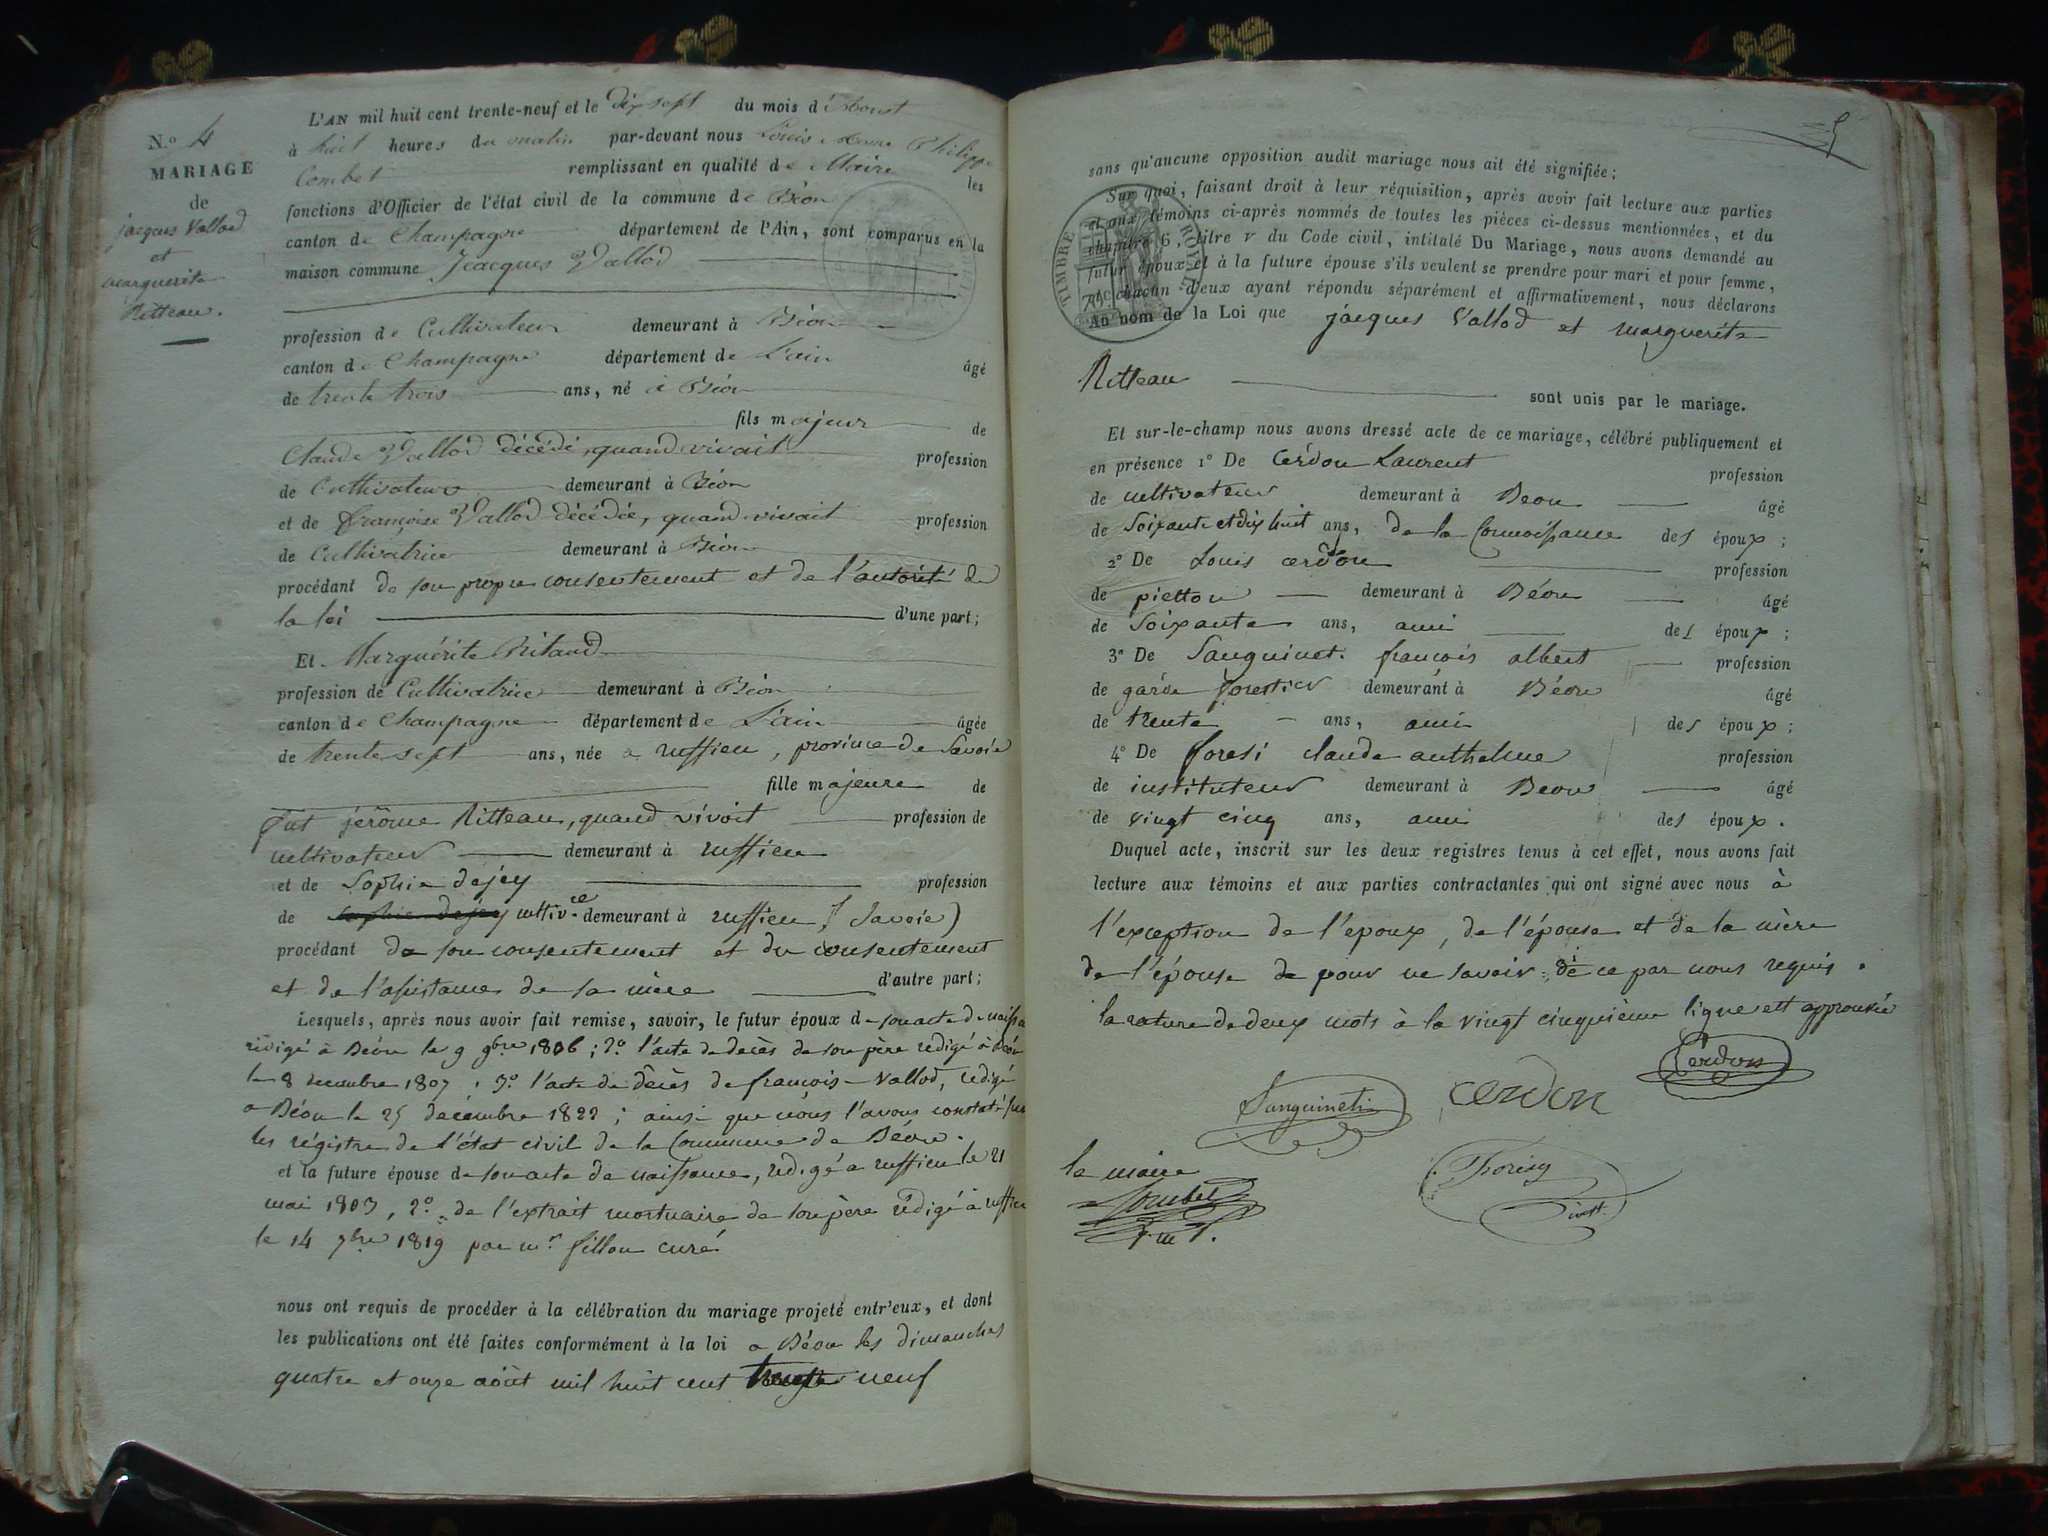 N.o 4
MARIAGE
de
jacques Vallod
et
marguerite
Ritteau.
L'AN mil huit cent trente-neuf et le dix sept du mois d'Aoust
à huit heures du matin par-devant nous Louis Philippe
Combet remplissant en qualité de Maire les
fonctions d'Officier de l'état civil de la commune de Béon
canton de Champagne département de l'Ain, sont comparus en la
maison commune Jacques Vallod
profession de Cultivateur demeurant à Béon
canton de Champagne département de L'ain âgé
de trente trois ans, né à Béon
fils majeur de
Claude Vallod décédé, quand vivait profession
de Cultivateur demeurant à Béon
et de françoise Vallod décédée, quand vivait profession
de Cultivatrice demeurant à Béon
procédant de son propre consentement et de l'autorité de
la loi d'une part;
Et Marguérite Ritaud
profession de Cultivatrice demeurant à Béon
canton de Champagne département de L'ain âgée
de trente sept ans, née a ruffieu, province de Savoie
fille majeure de
fut jerôme Ritteau, quand vivoit profession de
cultivateur demeurant à ruffieu
et de Sophie dejey profession
de sophie dejey cultiv.ce demeurant à ruffieu (Savoie)
procédant de son consentement et du consentement
et de l'assistance de sa mère d'autre part;
Lesquels, après nous avoir fait remise, savoir, le futur époux de son acte de naissa
rédigé à Béon le 9 9bre 1806; 2.o l'acte de décès de son père redigé à Béon
le 8 decembre 1807; 3.o l'acte de décès de françoise Vallod, redigé
a Béon le 25 décembre 1822; ainsi que nous l'avons constaté sur
les régistre de l'état civil de la Commune de Béon.
et la future épouse de son acte de naissance, redigé a ruffieu le 21
mai 1803, 2.o de l'extrait mortuaire de son père rédigé à ruffieu
le 14 1819 par mr fillon curé
nous ont requis de procéder à la célébration du mariage projeté entr'eux, et dont
les publications ont été faites conformément à la loi a Béon les dimanches
quatre et onze août mil huit cent trente neuf
5
sans qu'aucune opposition audit mariage nous ait été signifiée;
Sur quoi, faisant droit à leur réquisition, après avoir fait lecture aux parties
et aux témoins ci-après nommés de toutes les pièces ci-dessus mentionnées, et du
chapitre 6, titre v du Code civil, intitulé Du Mariage, nous avons demandé au
futur époux et à la future épouse s'ils veulent se prendre pour mari et pour femme,
et chacun d'eux ayant répondu séparément et affirmativement, nous déclarons
Au nom de la Loi que jacques Vallod et marguerite
TIMBRE ROYAL
Ritteau sont unis par le mariage.
Et sur-le-champ nous avons dressé acte de ce mariage, célébré publiquement et
en présence 1º De Cerdon Laurent profession
de cultivateur demeurant à Beon âgé
de soixante et dix huit ans, de la Connoissance des époux;
2º De Louis cerdon profession
de pietton demeurant à Béon âgé
de Soixante ans, ami des époux;
3º De Sanguinet. françois albert profession
de garde forestier demeurant à Béon âgé
de trente ans, ami des époux;
4º De foresi claude anthelme profession
de instituteur demeurant à Beon âgé
de vingt cinq ans, ami des époux.
Duquel acte, inscrit sur les deux registres tenus à cet effet, nous avons fait
lecture aux témoins et aux parties contractantes qui ont signé avec nous à
l'exception de l'époux, de l'épouse et de la mère
de l'épouse de pour ne savoir: de ce par nous requis.
la rature de deux mots à la vingt cinquième ligne est approuvée
Cerdon
Sanguineti
cerdon
le maire
Combet